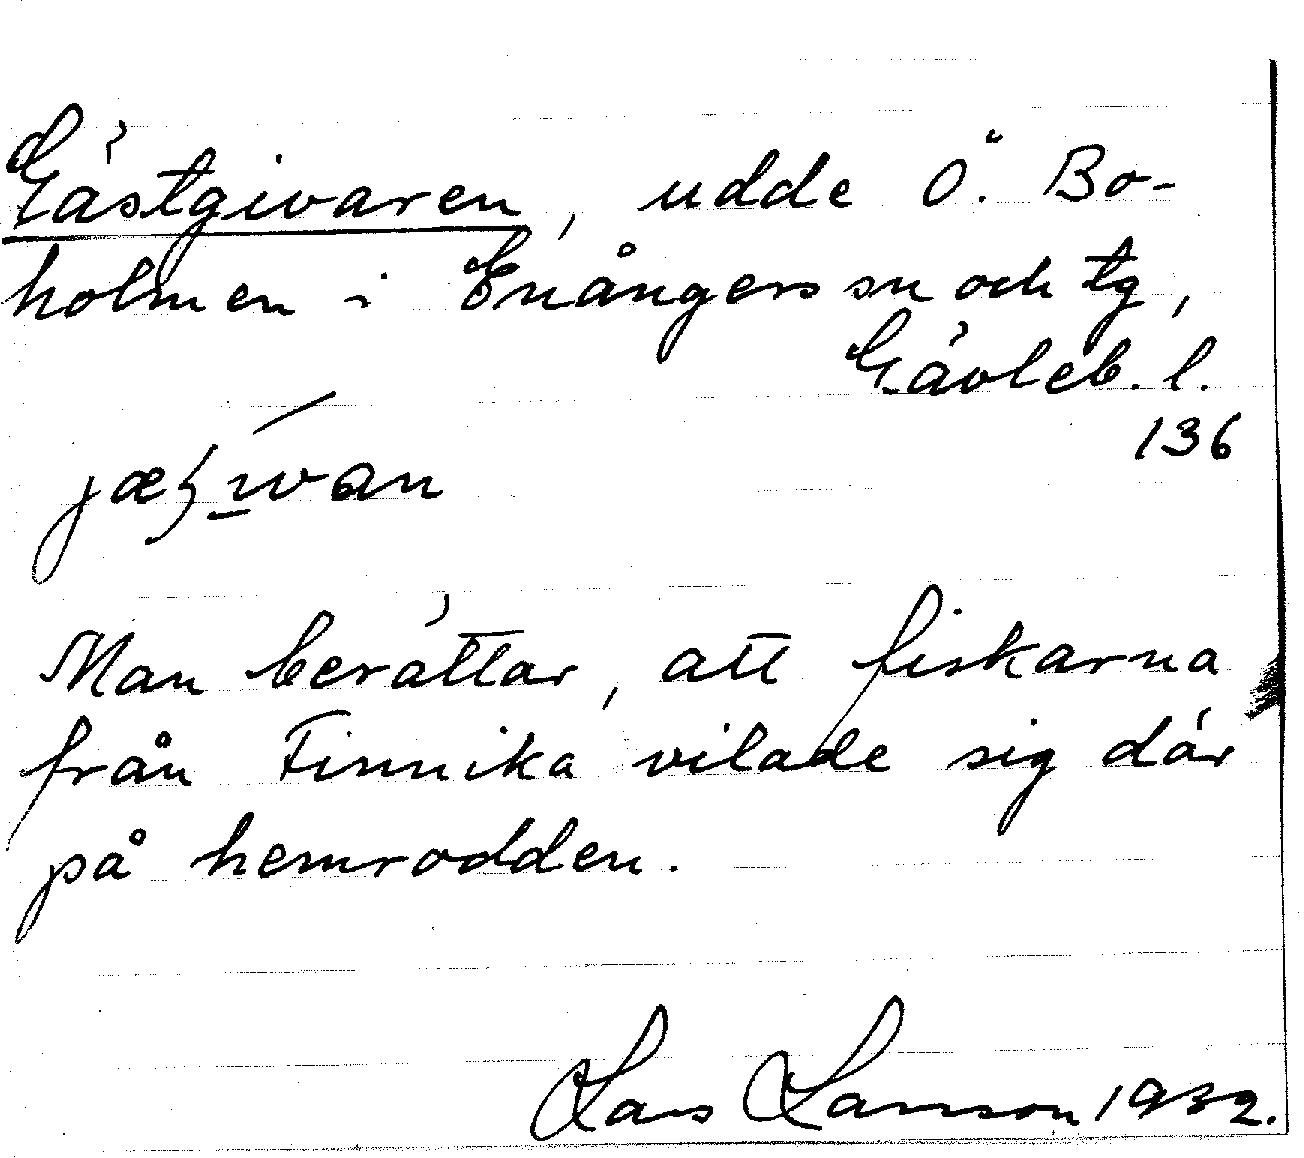 Gästgivaren, udde Ö. Bo-
holmen i Enångers sn och tg,
Gävleb. l.
136
Man berättar, att fiskarna
från Finnika vilade sig där
på hemrodden.
Lars Larsson 1932.